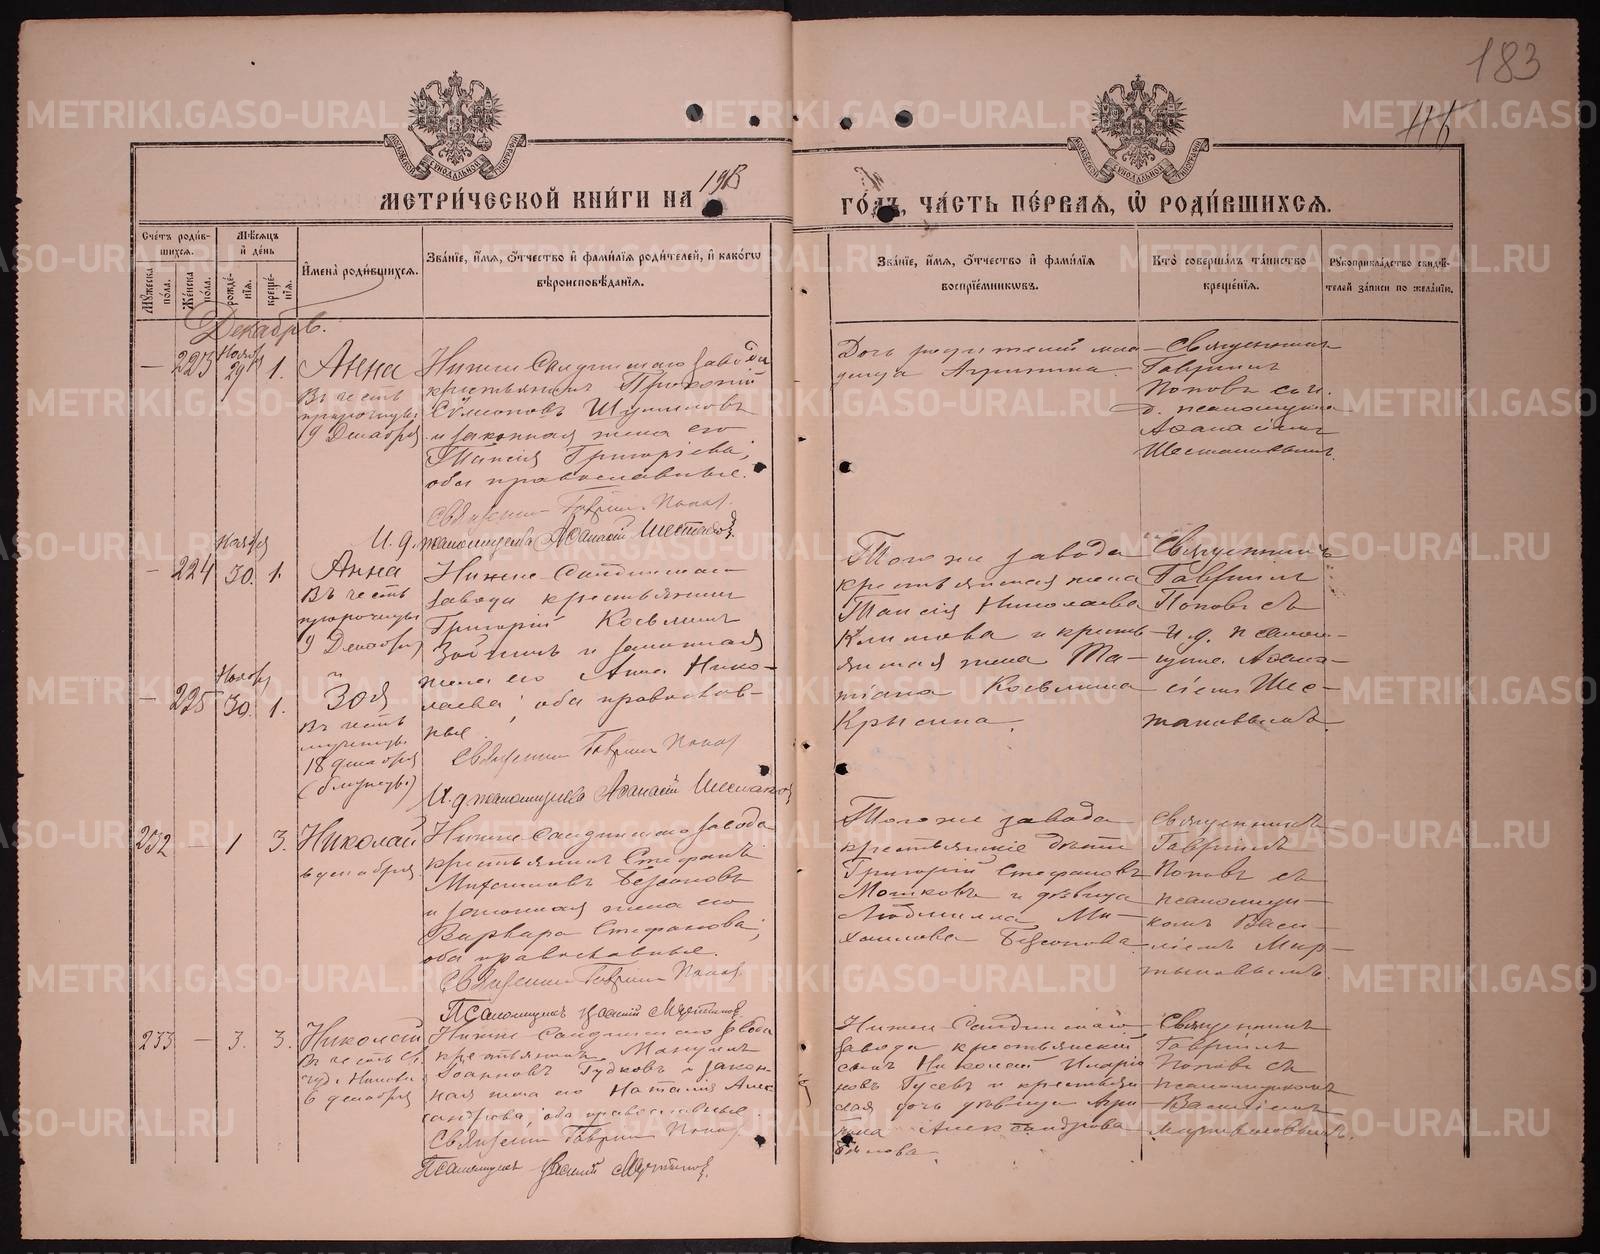 183
МЕТРИ́ЧЕСКОЙ КНИ́ГИ НА
ГО́ДЪ, ЧА́СТЬ ПЕ́РВАЯ, Ѡ҆ РОДИ́ВШИХСЯ.
Сче́тъ роди́вшихся.
Му́жеска по́ла.
Же́нска по́ла.
Мѣ́сяцъ и҆ де́нь
рожде́нїя.
креще́нїя.
И҆мена̀ роди́вшихся.
Зва́нїе, и҆́мя, ѻ҆́тчество и҆ фами́лїя роди́телей, и҆ како́гѡ
вѣроисповѣ́данїя.
Зва́нїе, и҆́мя, ѻ҆́тчество и҆ фами́лїя
воспрїе́мниковъ.
Кто̀ соверша́лъ та́инство
креще́нїя.
Рꙋкоприкла́дство свидѣ́
телей за́писи по жела́нїю.
Декабрь.
— 223 Ноября 29 1. Анна
Въ честь
пророчицы
9 Декабря
Нижне Салдинскаго завода
крестьянинъ Прокопій
Симеоновъ
и законная жена его
Таисія Григоріева,
оба православные.
Священникъ Гавріилъ Поповъ
И. д. псаломщика Аѳанасій Шестаковъ
Дочь родителей
дѣвица
Священникъ
Гавріилъ
Поповъ съ и.
д. псаломщика
Аѳанасіемъ
Шестаковымъ.
— 224 Ноября 30. 1. Анна
Въ честь
пророчицы
9 Декабря
и
— 225 Ноября 30. 1. Зоя
Въ честь
мученицы
18 декабря
(близнецы)
Нижне-Салдинскаго
завода крестьянинъ
Григорій Косьминъ
и законная
жена его Анна Нико-
лаева, оба православ-
ные.
Священникъ Гавріилъ Поповъ
И. д. псаломщика Аѳанасій Шестаковъ
Того же завода
крестьянская жена
Таисія Николаева
Климова и кресть-
янская жена Та-
тіана Косьмина
Крысина.
Священникъ
Гавріилъ
Поповъ съ
и. д. псалом-
щика Аѳана-
сіемъ Шес-
таковымъ.
232 — 1 3. Николай
6 декабря
Нижне Салдинскаго завода
крестьянинъ Стефанъ
Михаиловъ Безсоновъ
и законная жена его
Варвара Стефанова,
оба православные.
Священникъ Гавріилъ Поповъ
Псаломщикъ Василій Мартыновъ
Того же завода
крестьянскіе дѣти
Григорій Стефановъ
Мошковъ и дѣвица
Людмилла Ми-
хаилова Безсонова.
Священникъ
Гавріилъ
Поповъ съ
псаломщи-
комъ Васи-
ліемъ Мар-
тыновымъ.
233. — 3. 3. Николай
Въ честь Св.
6 декабря
Нижне Салдинскаго завода
крестьянинъ Мануилъ
Іоанновъ Гудковъ и закон-
ная жена его Наталія Алек
сандрова, оба православные
Священникъ Гавріилъ Поповъ
Псаломщикъ Василій Мартыновъ
Нижне-Салдинскаго
завода крестьянскій
сынъ Николай Иларіо
новъ Гусевъ и крестьян
ская дочь дѣвица
Александрова
Священникъ
Гавріилъ
Поповъ съ
псаломщикомъ
Василіемъ
Мартыновымъ.
METRIKI.GASO-URAL.RU